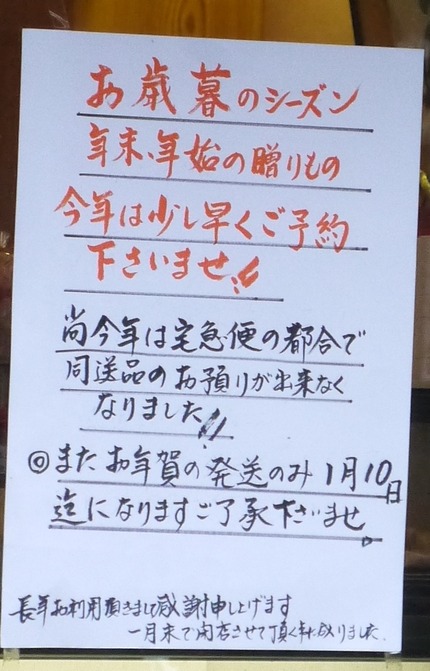 お歳暮のシーズン
年末、年始の贈りもの
今年は少し早くご予約
下さいませ!!
尚今年は宅急便の都合で
同送品のお預りが出来なく
なりました!!
◎またお年賀の発送のみ1月10日
迄になりますご了承下さいませ。
長年お利用頂きまして感謝申し上げます
一月末で閉店させて頂く事に成りました。